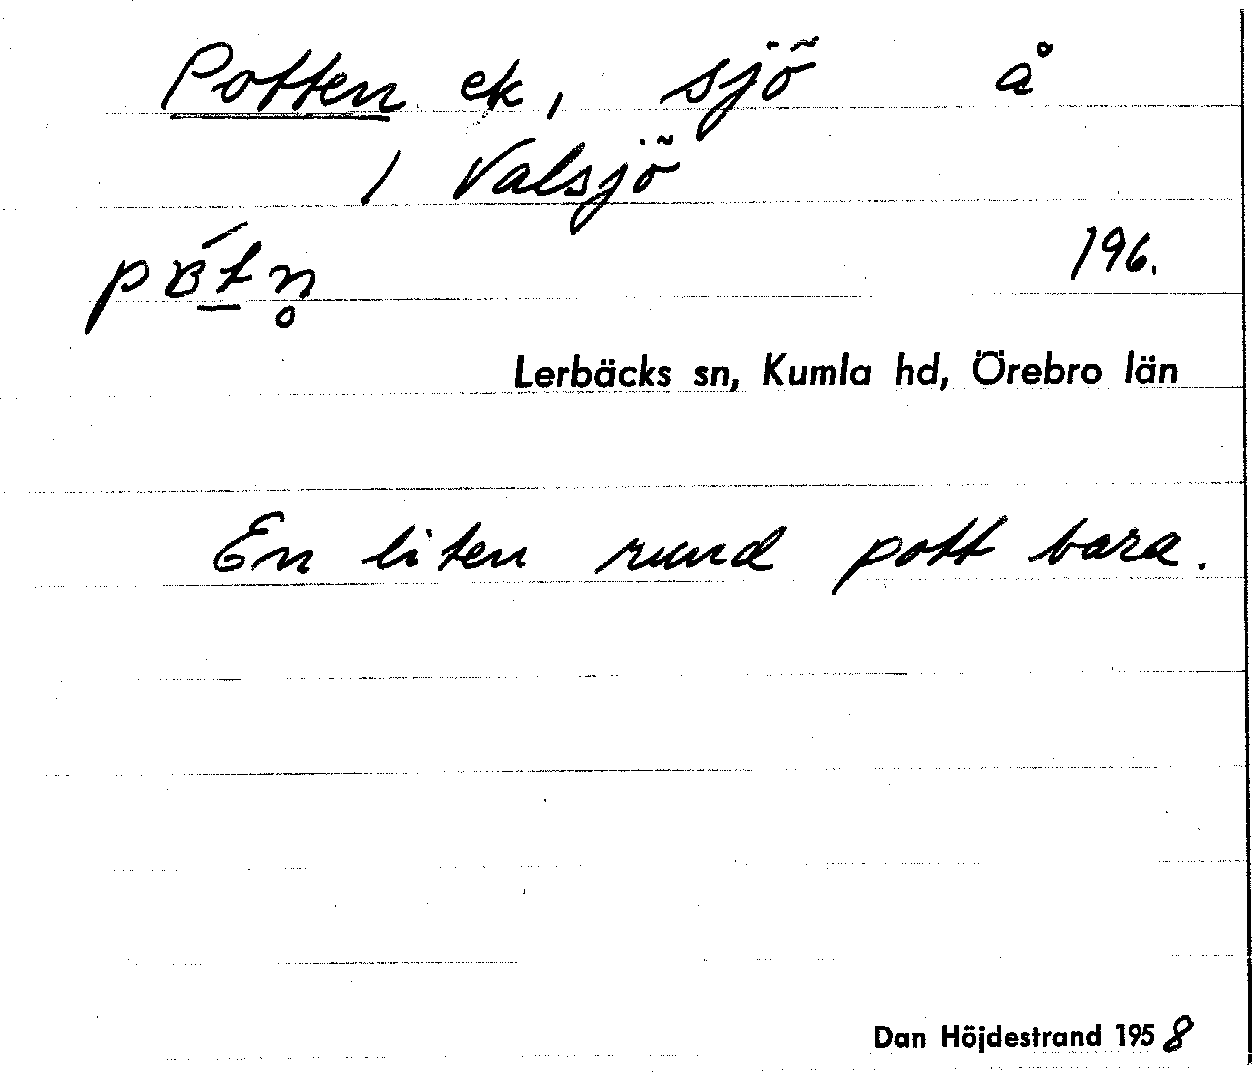 Potten ek, sjö å
/ Valsjö
196.
Lerbäcks sn, Kumla hd, Örebro län
En liten rund pott bara.
Dan Höjdestrand 1958